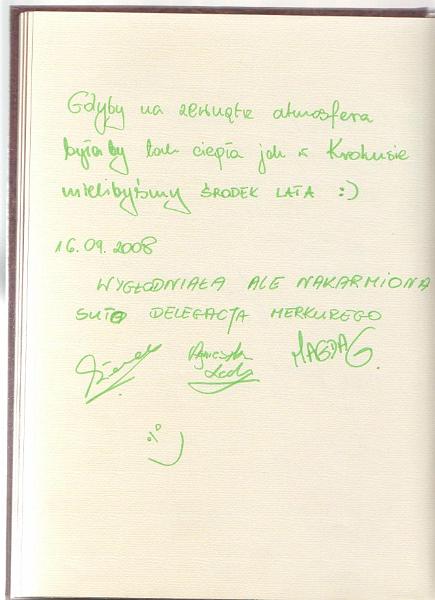 Gdyby na zewnątrz atmosfera
byłaby tak ciepła jak w Krokusie
mielibyśmy ŚRODEK LATA :)
16.09.2008
WYGŁODNIAŁA ALE NAKARMIONA
SUTO DELEGACJA MERKUREGO
Agnieszka
MAGDA G.
:)